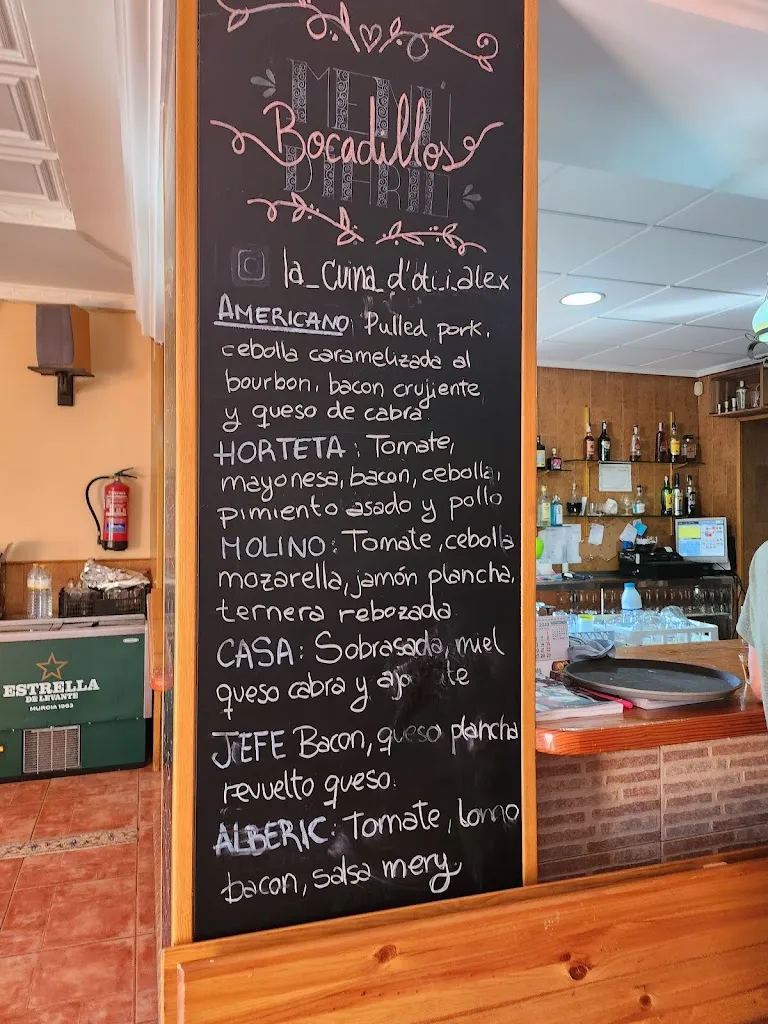 MENÚ
Bocadillos
DIARIO
AMERICANO: Pulled pork,
cebolla caramelizada al
bourbon, bacon crujiente
y queso de cabra
HORTETA: Tomate,
mayonesa, bacon, cebolla,
pimiento asado y pollo
MOLINO: Tomate, cebolla
mozarella, jamón plancha,
ternera rebozada
CASA: Sobrasada, miel
queso cabra y
JEFE Bacon, queso plancha
revuelto queso.
ALBERIC: Tomate, lomo
bacon, salsa mery
ESTRELLA
DE LEVANTE
MURCIA 1963